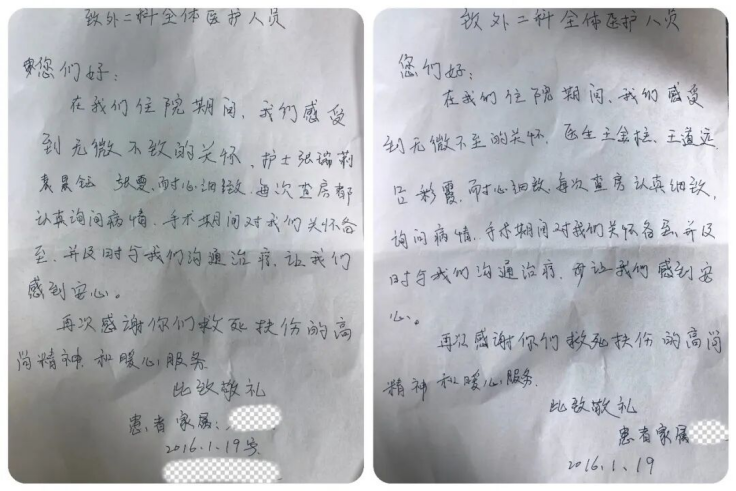 致外二科全体医护人员
您们好：
在我们住院期间，我们感受
到无微不致的关怀、护士张瑞莉
袁晨钰 张曼、耐心细致、每次查房都
认真询问病情、手术期间对我们关怀备
至、并及时与我们沟通治疗、让我们
感到安心。
再次感谢你们救死扶伤的高
尚精神 和暖心服务
此致敬礼
患者家属：
2016.1.19号
致外二科全体医护人员
您们好：
在我们住院期间、我们感受
到无微不至的关怀、医生王金柱、王道远、
吕彩霞、耐心细致、每次查房认真细致、
询问病情、手术期间对我们关怀备至、并及
时与我们沟通治疗、让我们感到安
心。
再次感谢你们救死扶伤的高尚
精神和暖心服务、
此致敬礼
患者家属
2016.1.19